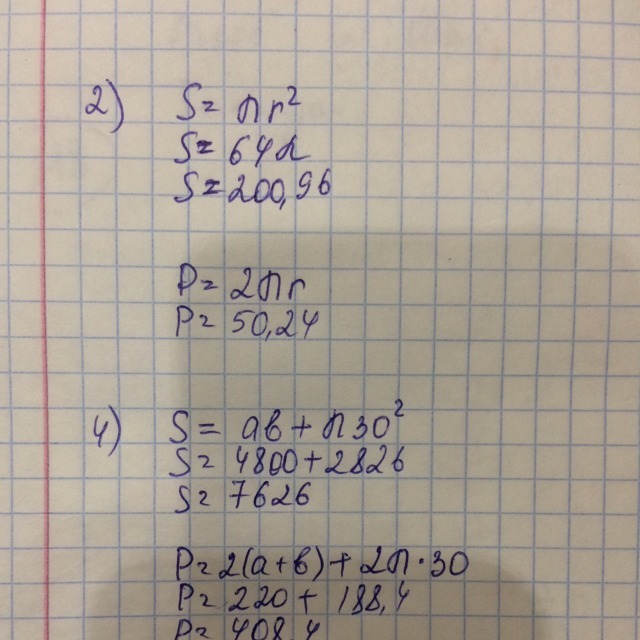 2) S = πr²
S = 64π
S = 200,96
P = 2πr
P = 50,24
4) S = aв + π30²
S = 4800 + 2826
S = 7626
P = 2(a+в) + 2π·30
P = 220 + 188,4
P = 408,4